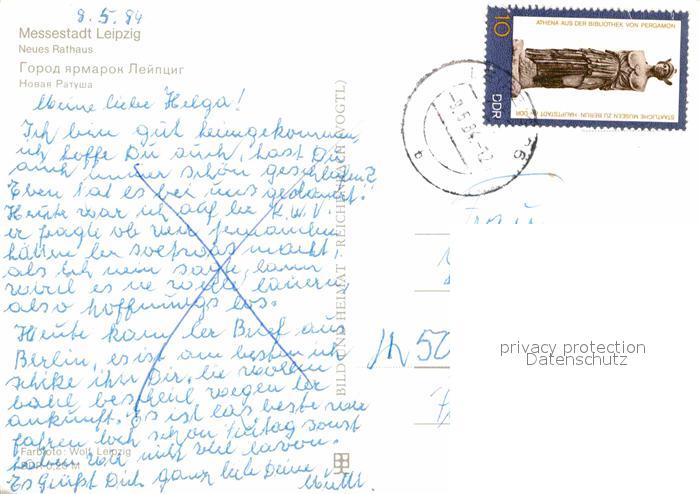 8.5.84
Messestadt Leipzig
Neues Rathaus
Город ярмарок Лейпциг
Новая Ратуша
Meine liebe Helga!
Ich bin gut heimgekommen,
ich hoffe Du auch, hast Du
auch immer schön geschlafen?
Eben hat es bei uns gedonnert.
Heute war ich auf der K.W.V.
er fragte ob wir jemanden
hätten der soetwas macht,
als ich nein sagte, dann
wird es ne Weile dauern,
also hoffnungslos.
Heute kam der Brief aus
Berlin, es ist am besten ich
schike ihn Dir, die wollen
bald bescheid wegen der
ankunft. Es ist das beste wir
fahren doch schon Freitag sonst
haben wir nicht viel davon.
Es Grüßt Dich ganz lieb Deine
Mutti
Farbfoto: Wolf, Leipzig
DDR 0,20 M
BILD UND HEIMAT REICHENBACH (VOGTL)
10
DDR
ATHENA AUS DER BIBLIOTHEK VON PERGAMON
STAATLICHE MUSEEN ZU BERLIN · HAUPTSTADT DDR
-9.5.84-12
50
privacy protection
Datenschutz